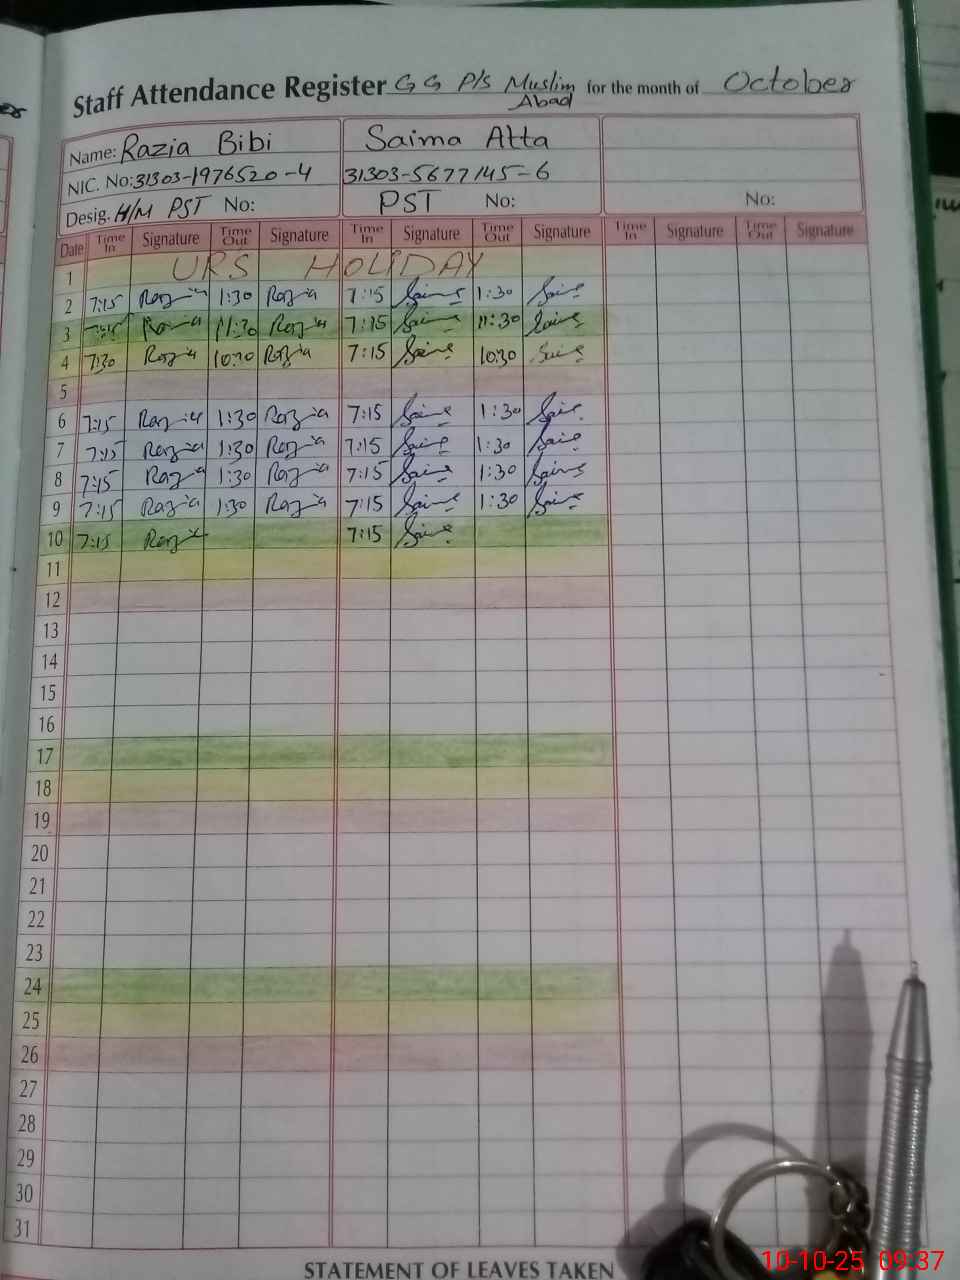 Staff Attendance Register G G P/S Muslim Abad for the month of October
Name: Razia Bibi Saima Atta
NIC. No: 31303-1976520-4 31303-5677145-6
Desig. H/M PST No: PST No: No:
Date Time In Signature Time Out Signature Time In Signature Time Out Signature Time In Signature Time Out Signature
1 URS HOLIDAY
2 7:15 Razia 1:30 Razia 7:15 Saima 1:30 Saima
3 7:15 Razia 11:30 Razia 7:15 Saima 11:30 Saima
4 7:30 Razia 10:30 Razia 7:15 Saima 10:30 Saima
5
6 7:15 Razia 1:30 Razia 7:15 Saima 1:30 Saima
7 7:15 Razia 1:30 Razia 7:15 Saima 1:30 Saima
8 7:15 Razia 1:30 Razia 7:15 Saima 1:30 Saima
9 7:15 Razia 1:30 Razia 7:15 Saima 1:30 Saima
10 7:15 Razia 7:15 Saima
11
12
13
14
15
16
17
18
19
20
21
22
23
24
25
26
27
28
29
30
31
STATEMENT OF LEAVES TAKEN
10-10-25 09:37